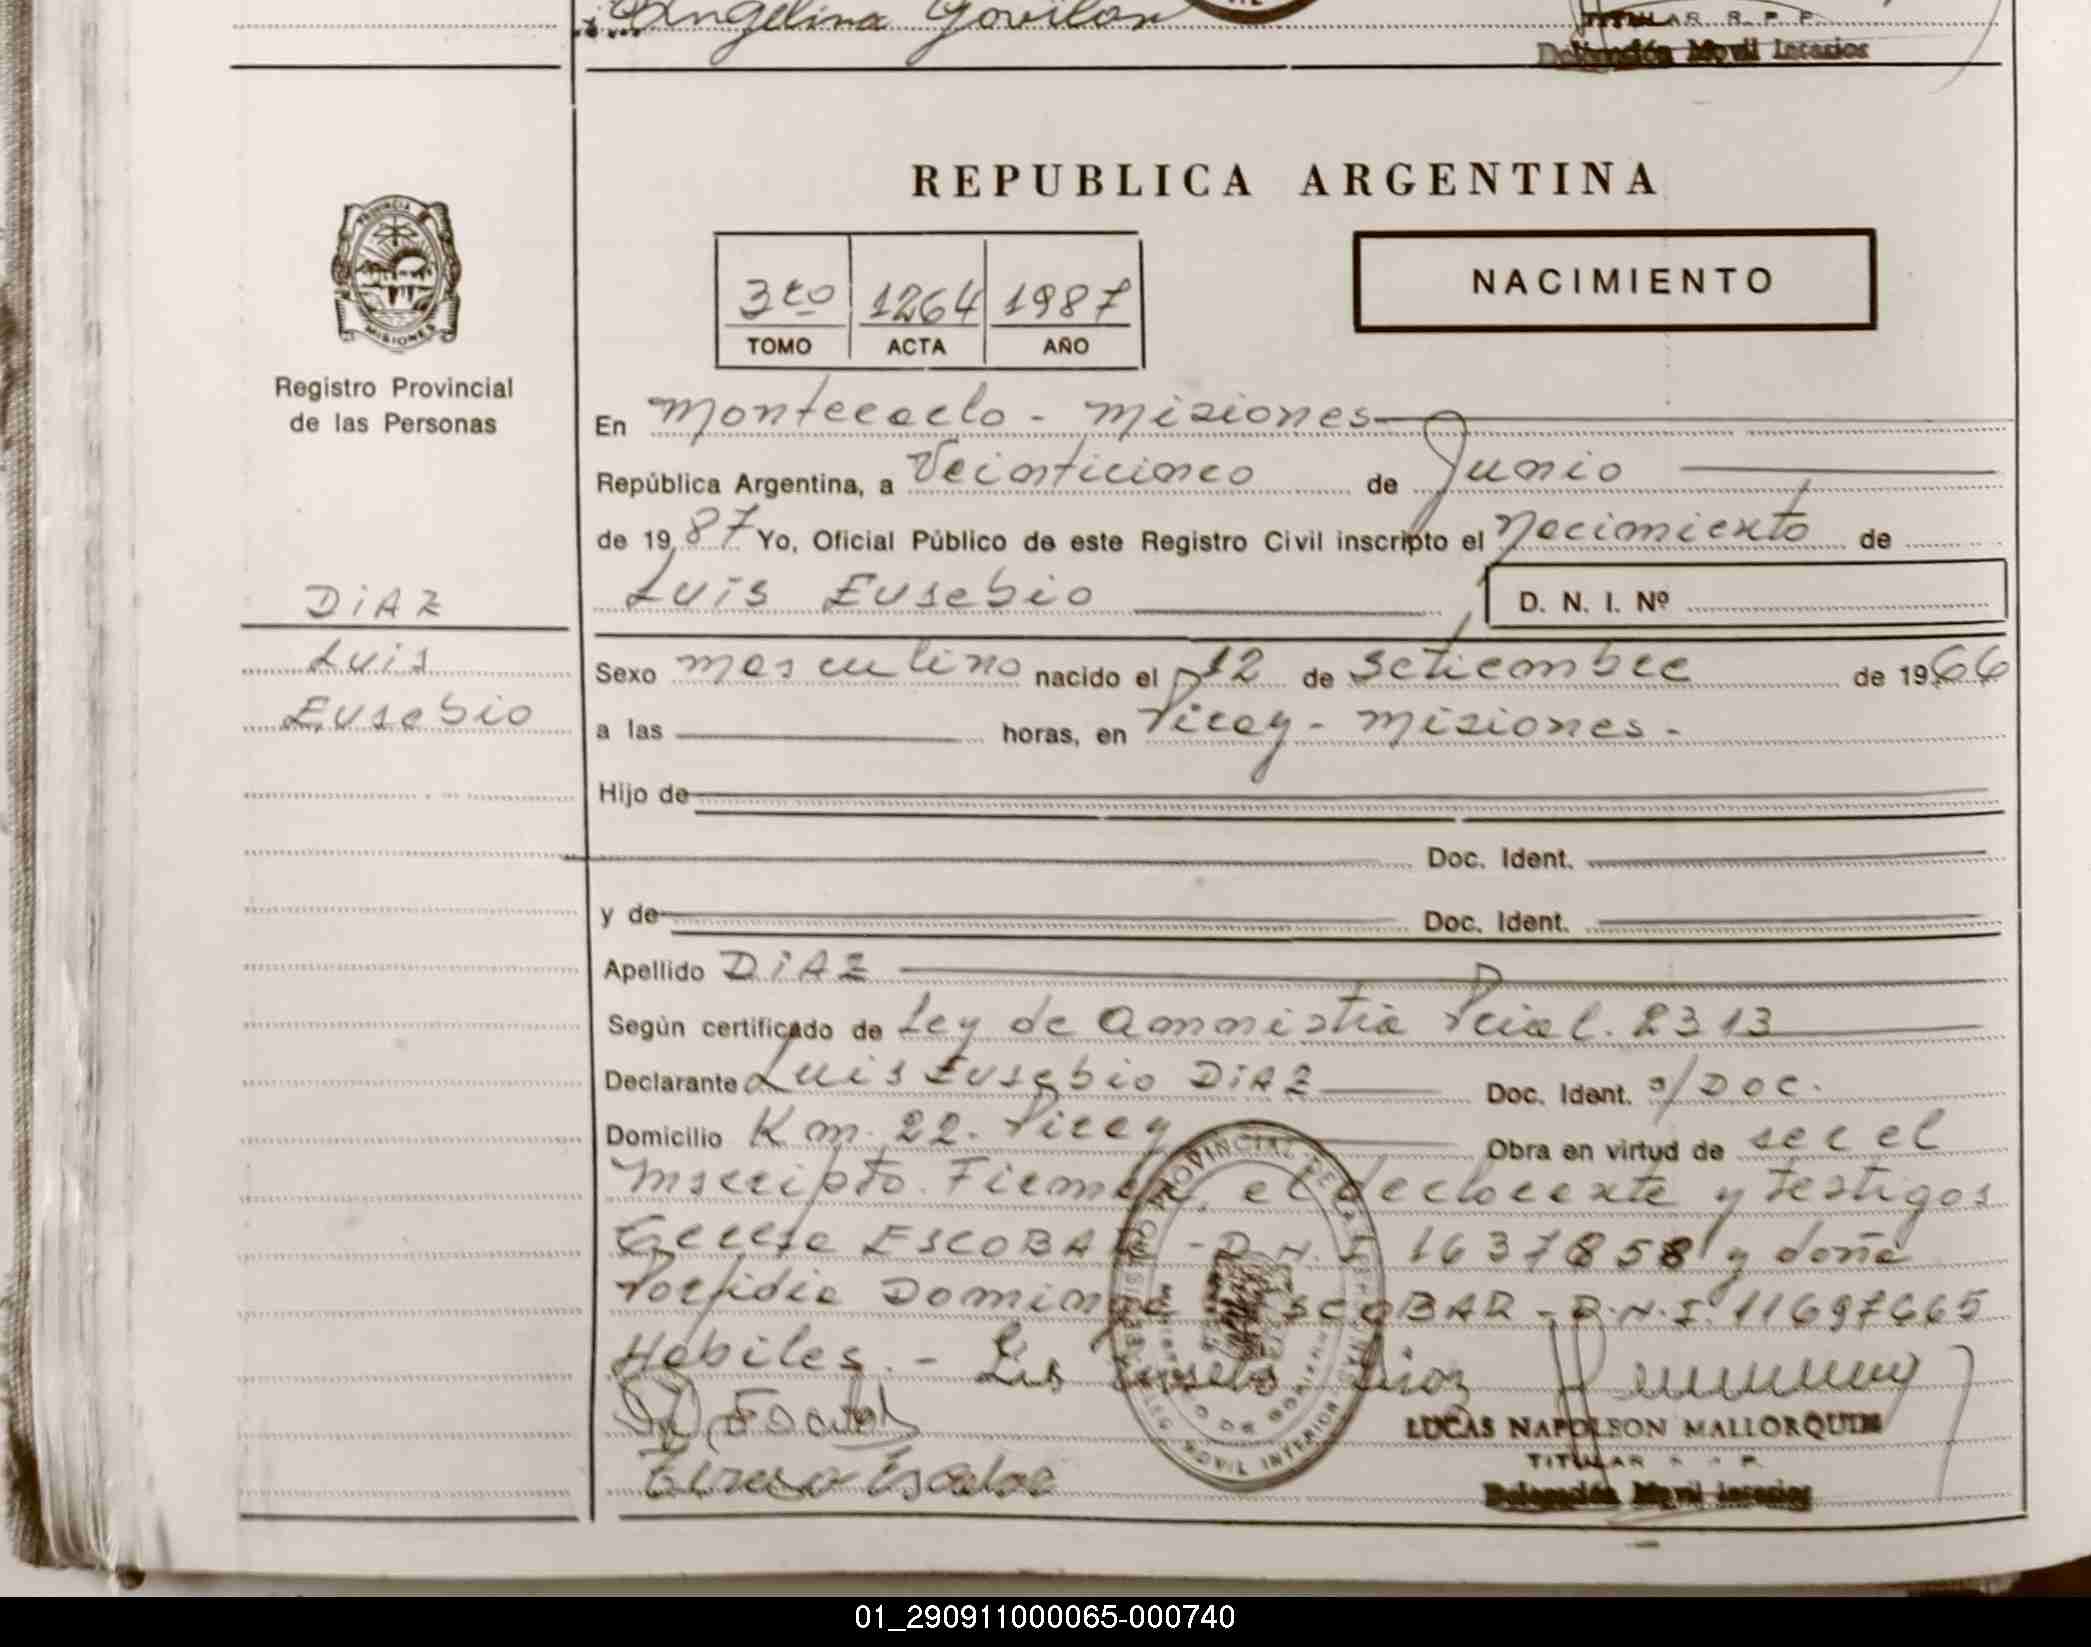 Angelina Gavilan
TITULAR R. P. P.
Delegación Movil Interior
REPUBLICA ARGENTINA
PROVINCIA
MISIONES
Registro Provincial
de las Personas
3ro 1264 1987
TOMO ACTA AÑO
NACIMIENTO
En Montecarlo - Misiones
República Argentina, a Veinticinco de Junio
de 1987 Yo, Oficial Público de este Registro Civil inscripto el Nacimiento de
Luis Eusebio D. N. I. Nº
DIAZ
Luis
Eusebio
Sexo masculino nacido el 12 de Setiembre de 1966
a las horas, en Piray - Misiones.-
Hijo de
Doc. Ident.
y de Doc. Ident.
Apellido DIAZ
Según certificado de Ley de Amnistia Pcial. 2313
Declarante Luis Eusebio DIAZ Doc. Ident. s/Doc.
Domicilio Km. 22. Piray Obra en virtud de ser el
Inscripto. Firman, el declarante y testigos
ESCOBAR - D.N.I 1637858 y doña
Porfidia Dominga ESCOBAR - D.N.I. 11697665
Habiles. - Luis Eusebio Diaz
LUCAS NAPOLEON MALLORQUIN
TITULAR R. P. P.
Delegación Movil Interior
Escobar
01_290911000065-000740